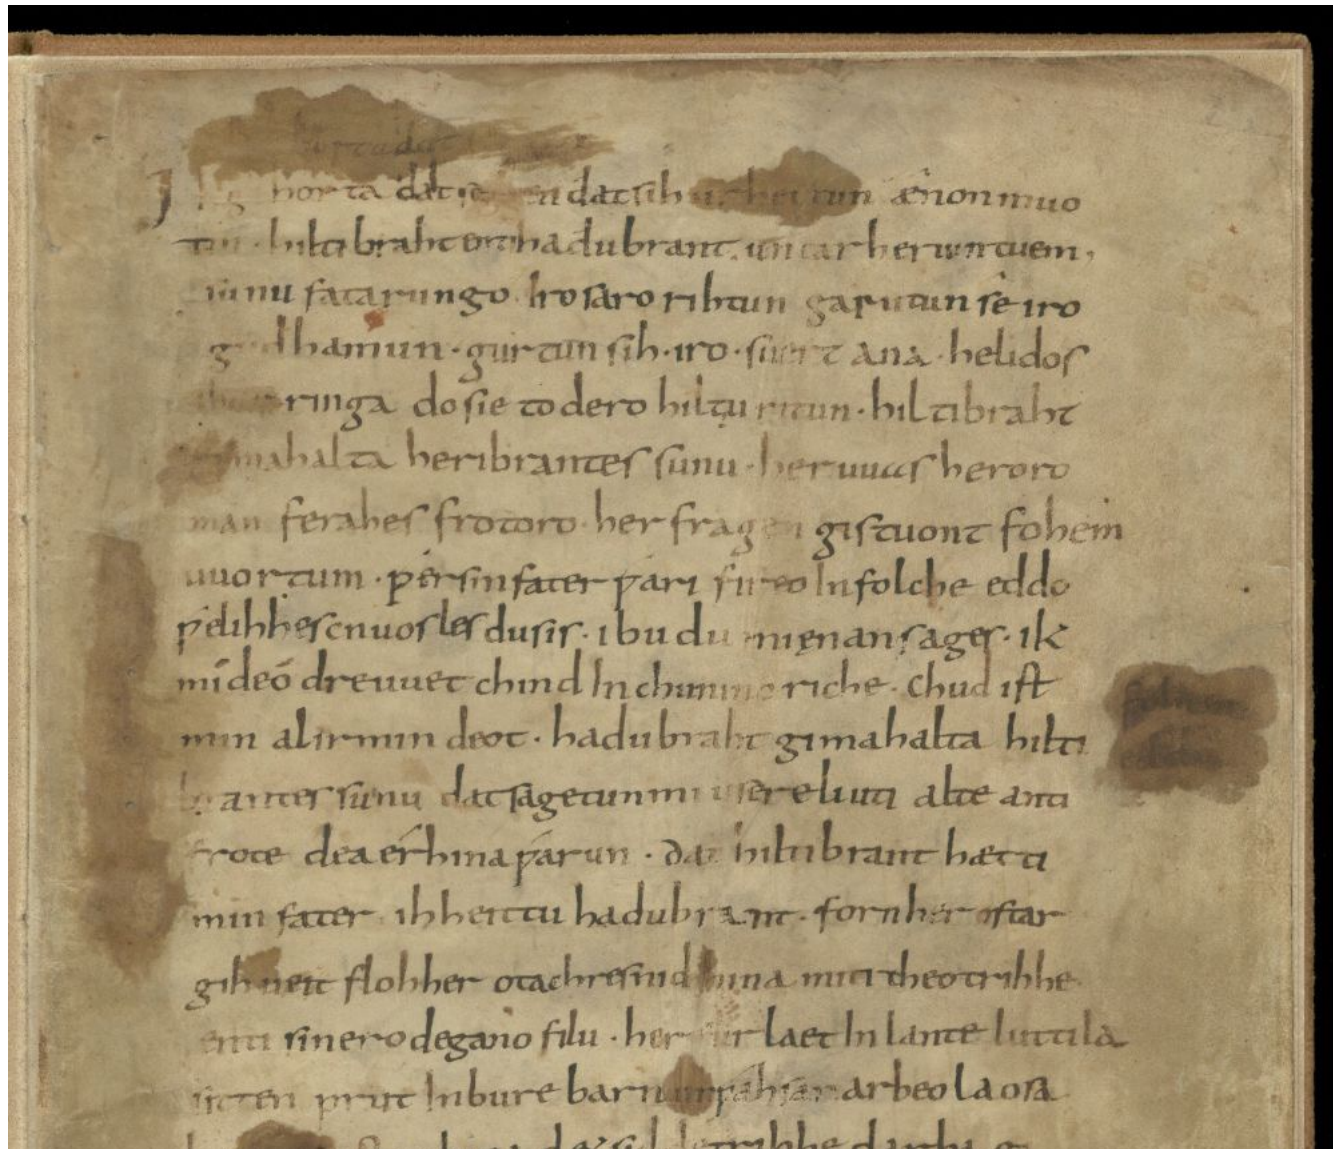 Ik gihorta dat seggen dat sih urhettun ænon muo
tin · hiltibraht enti hadubrant · untar heriun tuem ·
sunufatarungo · iro saro rihtun garutun sê iro
gudhamun · gurtun sih · iro · suert ana · helidos
ringa do sie to dero hiltu ritun · hiltibraht
gimahalta heribrantes sunu · her uuas heroro
man ferahes frotoro · her fragen gistuont fohem
uuortum · ƿer sin fater ƿari fireo In folche eddo
ƿelihhes cnuosles du sis · ibu du mi ęnan sages · ik
mi deo dre uuet chind In chunincriche · Chud ist
min al irmin deot · hadubraht gimahalta hilti
brantes sunu dat sagetun mi usere liuti alte anti
frote dea érhina ƿarun · dat hiltibrant hætti
min fater · ih heittu hadubrant · forn her ostar
gihueit floh her otachres nid hina miti theotrihhe
enti sinero degano filu · her furlaet In lante luttila
sitten prut In bure barn unƿahsan arbeo laosa